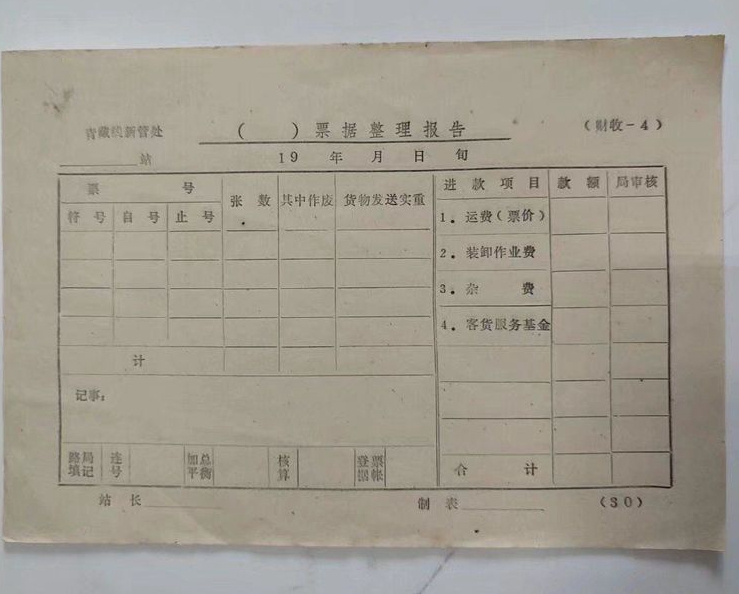 青藏线新管处 （　　）票据整理报告 （财收－4）
＿＿＿站 19　年　月　日　旬
票　　号 张　数 其中作废 货物发送实重 进款项目 款额 局审核
符　号 自　号 止　号 1．运费（票价）
2．装卸作业费
3．杂　　费
4．客货服务基金
计
记事：
路局填记 连号 加总平衡 核算 登票据帐 合　　计
站　长＿＿＿ 制　表＿＿＿ （30）